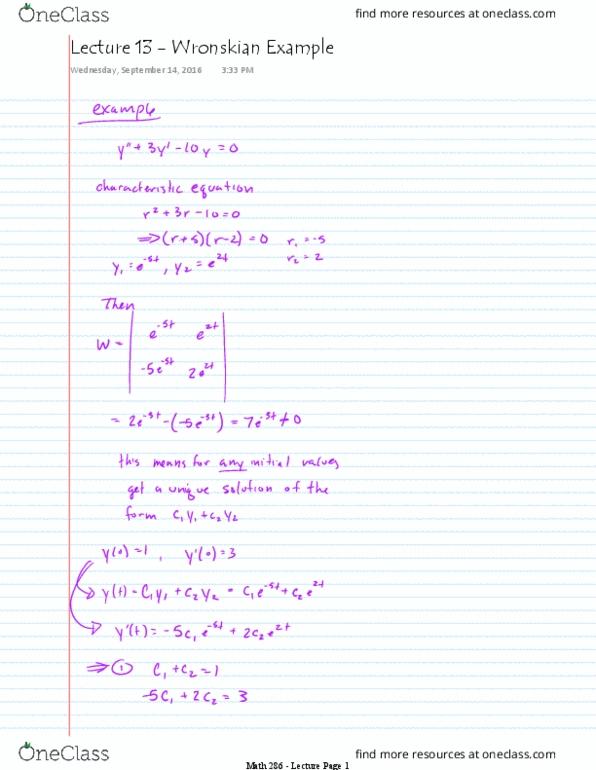 OneClass
find more resources at oneclass.com
Lecture 13 – Wronskian Example
Wednesday, September 14, 2016 3:33 PM
example
y'' + 3y' - 10y = 0
characteristic equation
r² + 3r - 10 = 0
⇒ (r+5)(r-2) = 0 r₁ = -5
y₁ = e^-5t, y₂ = e^2t r₂ = 2
Then
W = | e^-5t e^2t |
| -5e^-5t 2e^2t |
= 2e^-3t - (-5e^-3t) = 7e^-3t ≠ 0
this means for any initial values
get a unique solution of the
form c₁y₁ + c₂y₂
y(0) = 1, y'(0) = 3
y(t) = c₁y₁ + c₂y₂ = c₁e^-5t + c₂e^2t
y'(t) = -5c₁e^-5t + 2c₂e^2t
⇒ ① c₁ + c₂ = 1
-5c₁ + 2c₂ = 3
OneClass
find more resources at oneclass.com
Math 286 - Lecture Page 1